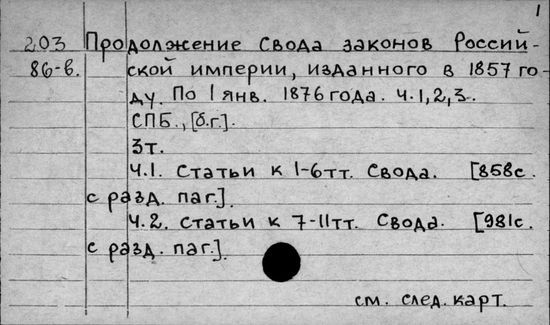 1
203 Продолжение Свода законов Россий-
86-в. ской империи, изданного в 1857 го-
ду. По 1 янв. 1876 года. Ч.1,2,3.
СПБ., [б.г.].
3т.
Ч.1. Статьи к 1-6тт. Свода. [858с.
с разд. паг.].
Ч.2. Статьи к 7-11тт. Свода. [981с.
с разд. паг.].
см. след. карт.